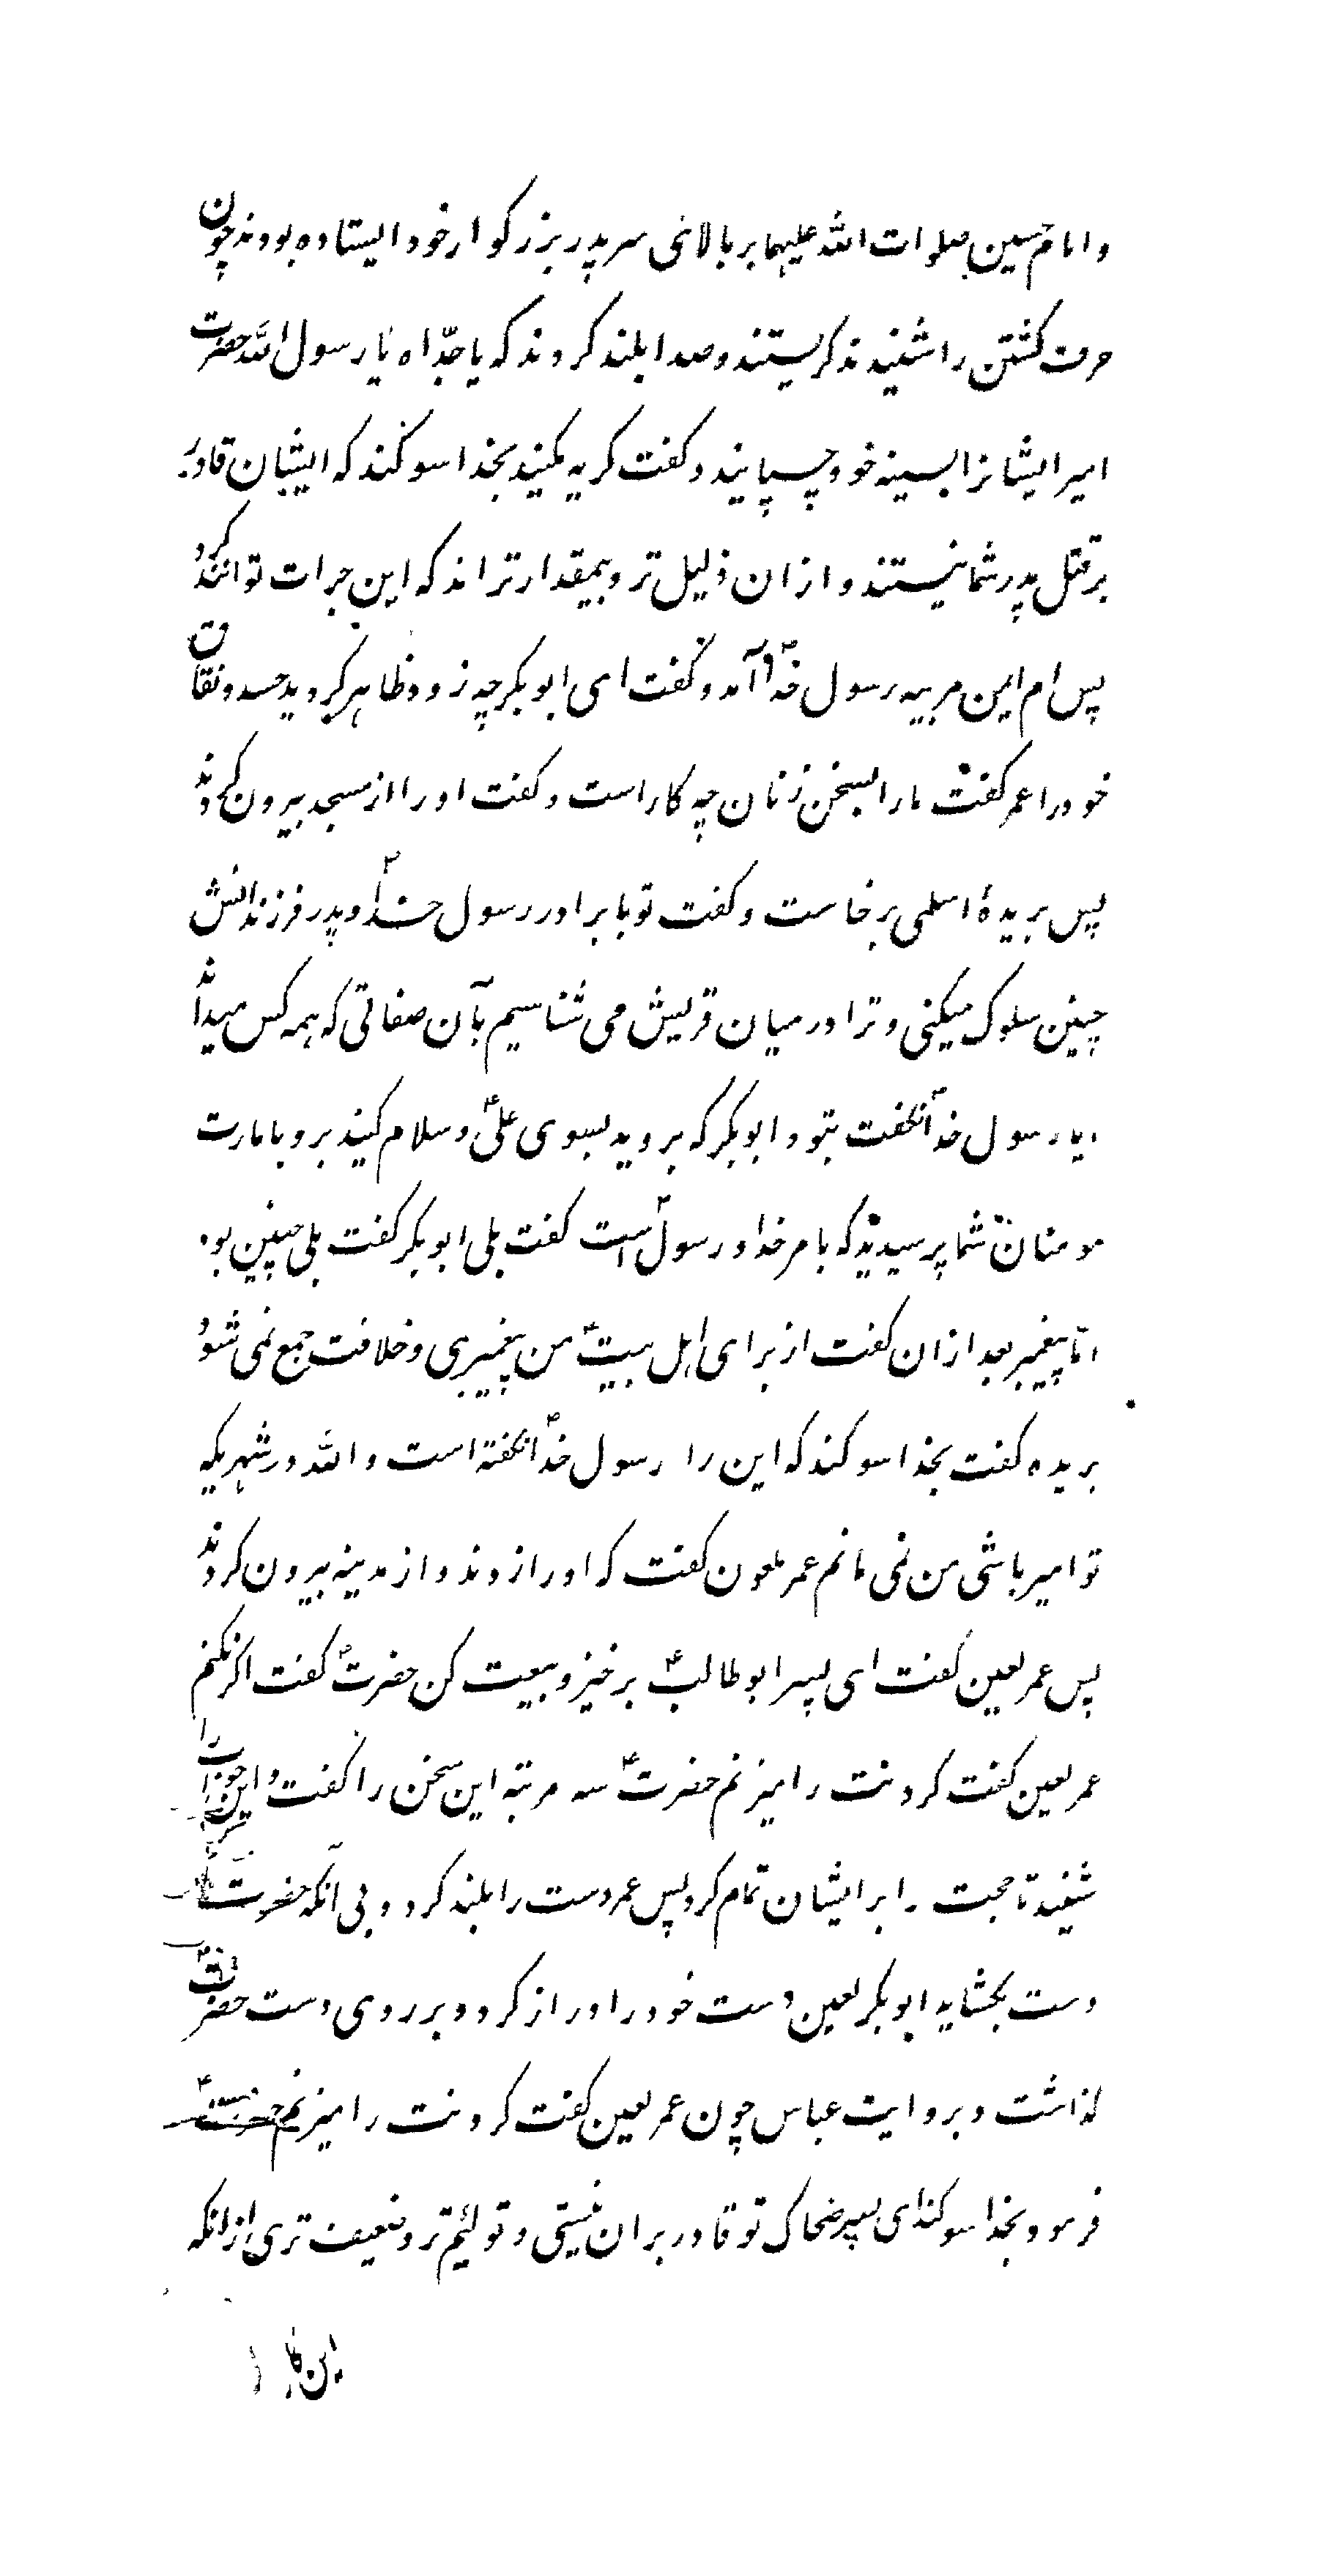 و امام حسین صلوات الله علیهما بر بالای سر پدر بزرکوار خود ایستاده بودند چون
حرف کشتن را شنیدند کریستند و صدا بلند کردند که یا جدّاه یا رسول الله حضرت
امیر ایشانرا بسینه خود چسپانید و کفت کریه مکنید بخدا سوکند که ایشان قادر
بر قتل پدر شما نیستند و ازان ذلیل تر و بیمقدار تر اند که این جرات توانند کرد
پس ام ایمن مربیه رسول خداؐ آمد و کفت ای ابوبکر چه زود ظاهر کردید حسد و نفاق
خود را عمر کفت ما را بسخن زنان چه کار است و کفت او را از مسجد بیرون کردند
پس بریدهٔ اسلمی برخاست و کفت تو با برادر رسول خداؐ و پدر فرزندانش
چنین سلوک میکنی و ترا در میان قریش می شناسیم بآن صفاتی که همه کس میداند
ایا رسول خداؐ نکفت بتو و ابوبکر که بروید بسوی علیؑ و سلام کنید برو بامارت
مومنان شما پرسیدید که بامر خدا و رسول است کفت بلی ابوبکر کفت بلی چنین بود
امّا پیغمبر بعد ازان کفت از برای اهل بیتؑ من پیغمبری و خلافت جمع نمی شود
بریده کفت بخدا سوکند که این را رسول خداؐ نکفته است و الله در شهریکه
تو امیر باشی من نمی مانم عمر ملعون کفت که او را زدند و از مدینه بیرون کردند
پس عمر لعین کفت ای پسر ابوطالبؑ برخیز و بیعت کن حضرتؑ کفت اکر نکنم
عمر لعین کفت کردنت را میزنم حضرتؑ سه مرتبه این سخن را کفت و این جواب را
شنید تا حجت را بر ایشان تمام کرد پس عمر دست را بلند کرد و بی آنکه حضرت
دست بکشاید ابوبکر لعین دست خود را دراز کرد و بر روی دست حضرتؑ
کذاشت و بروایت عباس چون عمر لعین کفت کردنت را میزنم حضرتؑ
فرمود بخدا سوکند ای پسر ضحاک تو قادر بران نیستی و تو لئیم تر و ضعیف تری ازانکه
این کار